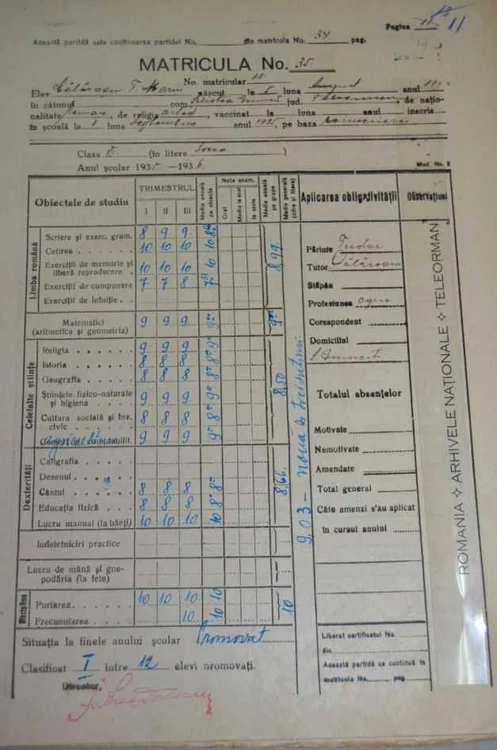 Pagina 11
11
Această partidă este continuarea partidei No. din matricola No. 34 pag.
MATRICULA No. 35
No. matricular 11
Elev Călărașu T. Marin născut la 5 luna August anul 19
în cătunul com. jud. Teleorman, de națio-
nalitate, de religie ortod, vaccinat la luna anul inscris
în școală la 1 luna Septembrie anul 19 pe baza
Clasa (în litere)
Anul școlar 1935 - 1936
Mod. No. 2
Obiectele de studiu
TRIMESTRUL
I II III
Media anuală pe obiecte
Note exam.
Oral
Media la oral
în scris
Media anuală pe grupe
Media generală (cifre și litere)
Aplicarea obligativității
Observațiuni
Limba română
Scriere și exerc. gram. 8 9 9
Cetirea 10 10 10 10
Exerciții de memorie și liberă reproducere 10 10 10 10
Exerciții de compunere 7 7 8
Exerciții de intuiție
8,99
Matematici (aritmetica și geometria) 9 9 9
Celelalte științe
Religia 9 9 9
Istoria 8 8 8
Geografia 8 8 8
Științele fizico-naturale și higiena 9 9 9
Cultura socială și inv. civic 8 8 8
9 9 9
8,50
Dexterități
Caligrafia
Desenul
Cântul 8 8 8
Educația fizică 8 8 8
Lucru manual (la băeți) 10 10 10 10
8,66
Indeletniciri practice
Lucru de mână și gospodăria (la fete)
Disciplina
Purtarea 10 10 10 10
Frecuentarea 10 10
10
9,03 - nouă și trei sutimi
Părinte Tudor
Tutor Călărașu
Stăpân
Profesiunea agric
Corespondent
Domiciliul
Totalul absențelor
Motivate
Nemotivate
Amendate
Total general
Câte amenzi s'au aplicat
în cursul anului
ROMANIA ✧ ARHIVELE NAȚIONALE ✧ TELEORMAN
Situația la finele anului școlar Promovat
Clasificat I intre 12 elevi promovați.
Director,
Liberat certificatul No.
din
Această partidă se continuă în
matricola No. pag.